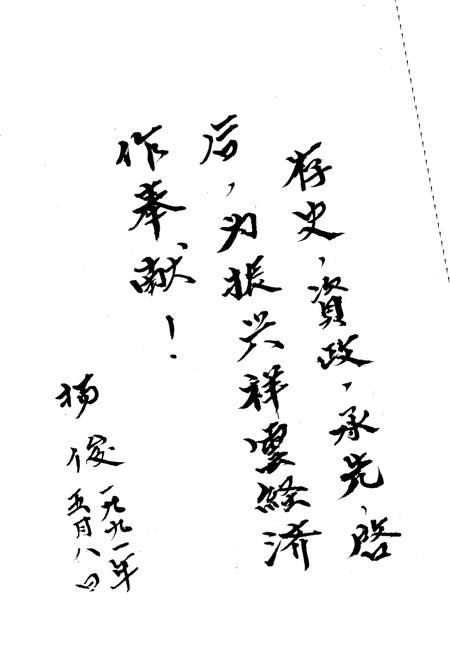 存史，資政，承先，啓
后，为振兴祥雲経済
作奉献！
杨俊
一九九一年
五月八日